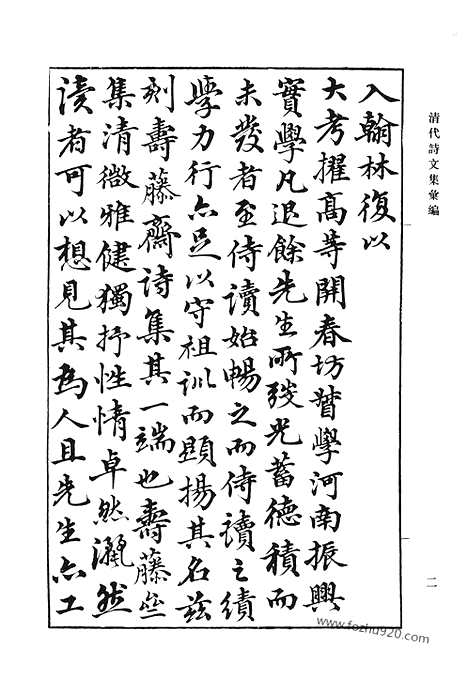 清代詩文集彙編
入翰林復以
大考擢高等開春坊督學河南振興
實學凡退餘先生所弢光蓄德積而
未發者至侍讀始暢之而侍讀之績
學力行亦足以守祖訓而顯揚其名茲
刻壽藤齋詩集其一端也壽藤亝
集清微雅健獨抒性情卓然灑然
讀者可以想見其為人且先生亦工
二
www.fozhu920.com